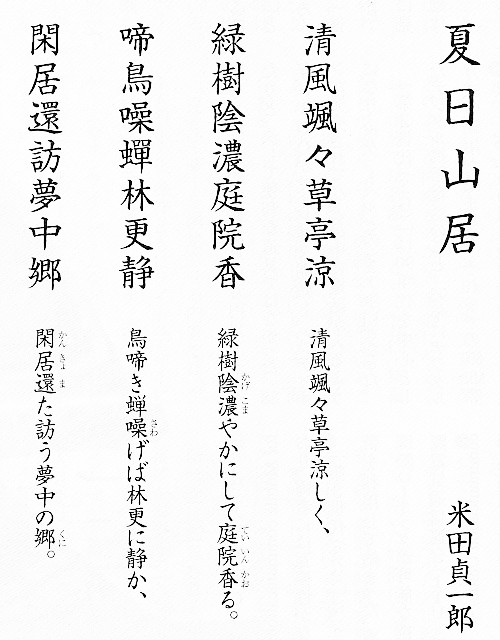 夏日山居
米田貞一郎
清風颯々草亭涼
清風颯々草亭涼しく、
緑樹陰濃庭院香
緑樹陰濃やかにして庭院香る。
かげ こま
ていいん かお
啼鳥噪蟬林更静
鳥啼き蟬噪げば林更に静か、
さわ
閑居還訪夢中郷
閑居還た訪う夢中の郷。
かん きょ ま
くに